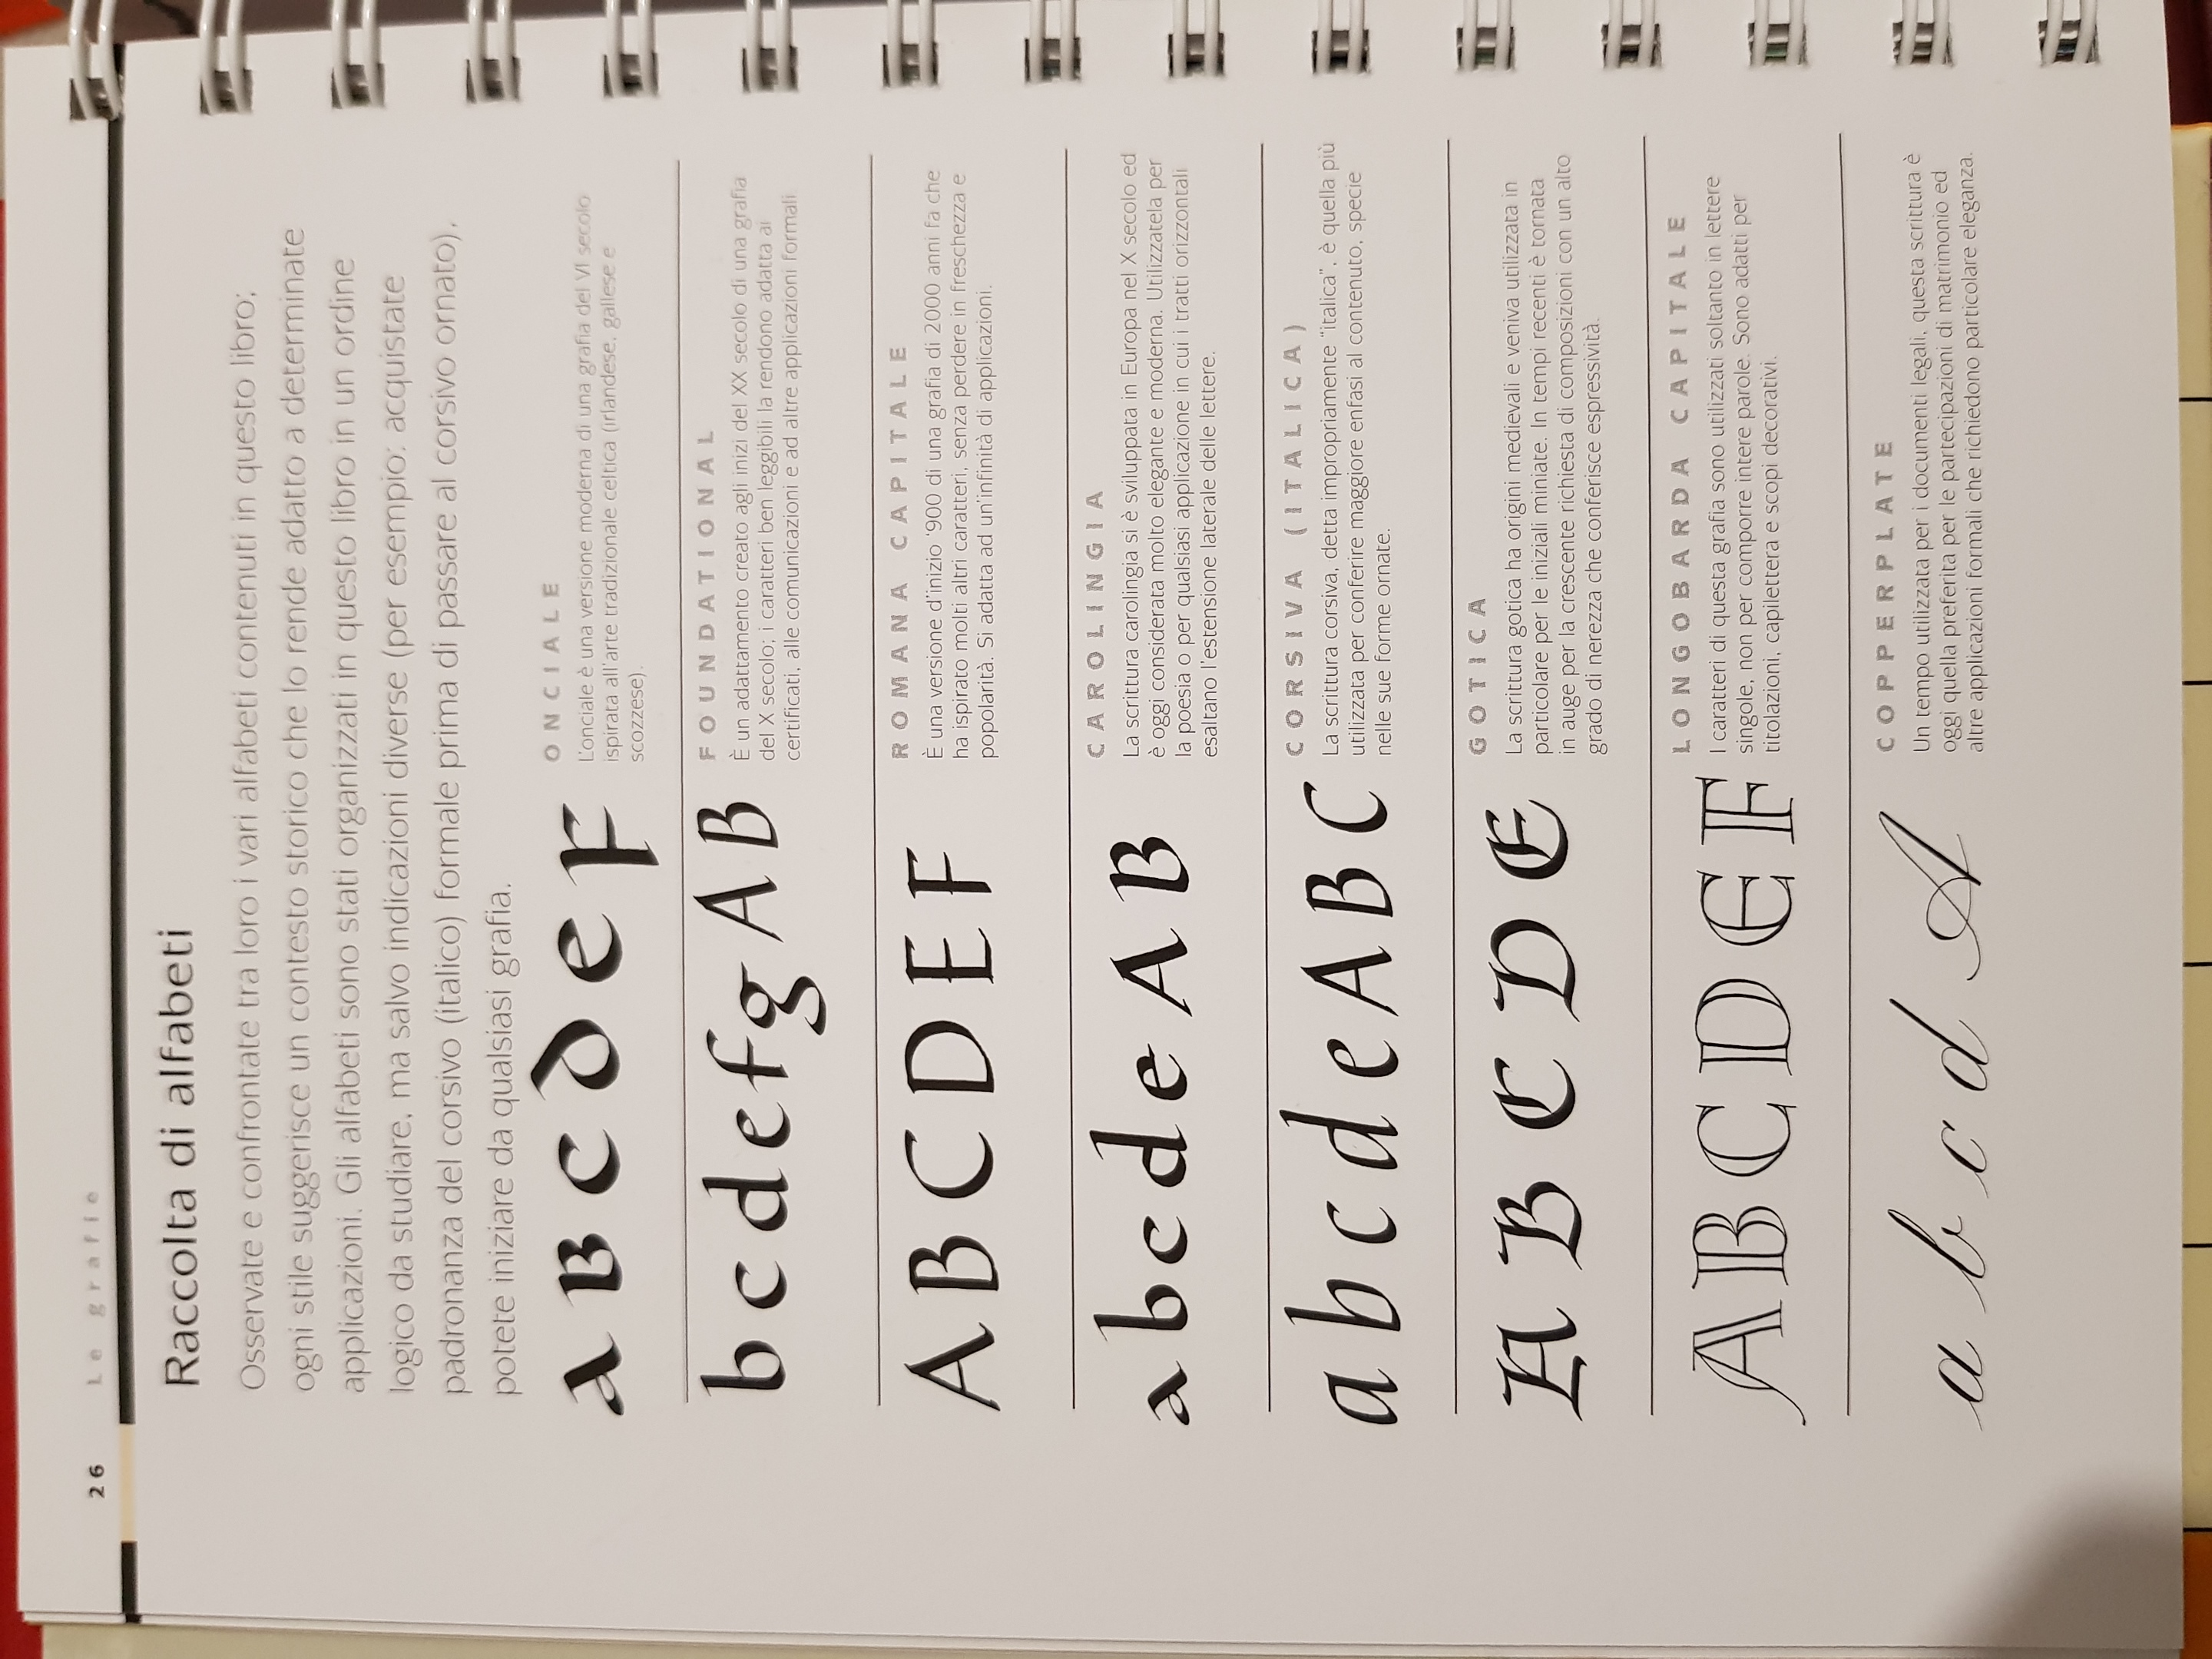 26
Le grafie
Raccolta di alfabeti
Osservate e confrontate tra loro i vari alfabeti contenuti in questo libro;
ogni stile suggerisce un contesto storico che lo rende adatto a determinate
applicazioni. Gli alfabeti sono stati organizzati in questo libro in un ordine
logico da studiare, ma salvo indicazioni diverse (per esempio: acquistate
padronanza del corsivo (italico) formale prima di passare al corsivo ornato),
potete iniziare da qualsiasi grafia.
a B c d e F
ONCIALE
L'onciale è una versione moderna di una grafia del VI secolo
ispirata all'arte tradizionale celtica (irlandese, gallese e
scozzese).
b c d e f g A B
FOUNDATIONAL
È un adattamento creato agli inizi del XX secolo di una grafia
del X secolo; i caratteri ben leggibili la rendono adatta ai
certificati, alle comunicazioni e ad altre applicazioni formali
A B C D E F
ROMANA CAPITALE
È una versione d'inizio '900 di una grafia di 2000 anni fa che
ha ispirato molti altri caratteri, senza perdere in freschezza e
popolarità. Si adatta ad un'infinità di applicazioni.
a b c d e A B
CAROLINGIA
La scrittura carolingia si è sviluppata in Europa nel X secolo ed
è oggi considerata molto elegante e moderna. Utilizzatela per
la poesia o per qualsiasi applicazione in cui i tratti orizzontali
esaltano l'estensione laterale delle lettere.
a b c d e A B C
CORSIVA (ITALICA)
La scrittura corsiva, detta impropriamente "italica", è quella più
utilizzata per conferire maggiore enfasi al contenuto, specie
nelle sue forme ornate.
A B C D E
GOTICA
La scrittura gotica ha origini medievali e veniva utilizzata in
particolare per le iniziali miniate. In tempi recenti è tornata
in auge per la crescente richiesta di composizioni con un alto
grado di nerezza che conferisce espressività.
A B C D E F
LONGOBARDA CAPITALE
I caratteri di questa grafia sono utilizzati soltanto in lettere
singole, non per comporre intere parole. Sono adatti per
titolazioni, capilettera e scopi decorativi.
a b c d A
COPPERPLATE
Un tempo utilizzata per i documenti legali, questa scrittura è
oggi quella preferita per le partecipazioni di matrimonio ed
altre applicazioni formali che richiedono particolare eleganza.